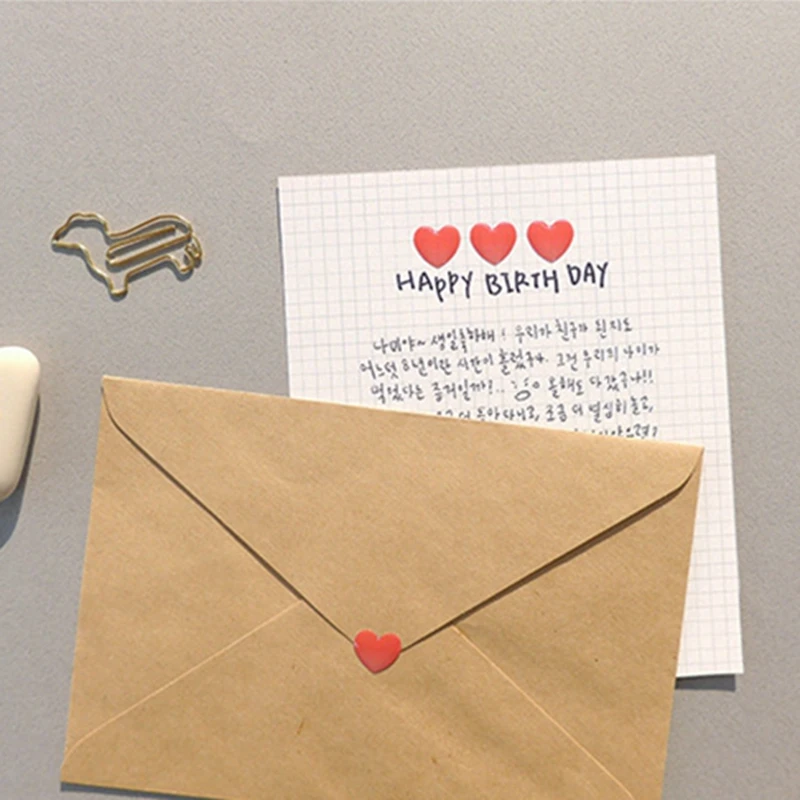 HAPPY BIRTH DAY
나미야~ 생일축하해! 우리가 친구가 된지도
어느덧 8년이란 시간이 흘렀구나. 그건 우리의 나이가
먹었다는 증거일까!.. 올해도 다 갔구나!!
더 돌아다니고, 조금 더 열심히 놀고,